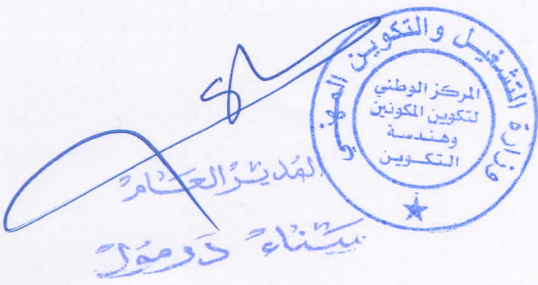 وزارة التشغيل والتكوين المهني
المركز الوطني
لتكوين المكونين
وهندسة
التكوين
المدير العام
سناء درمول